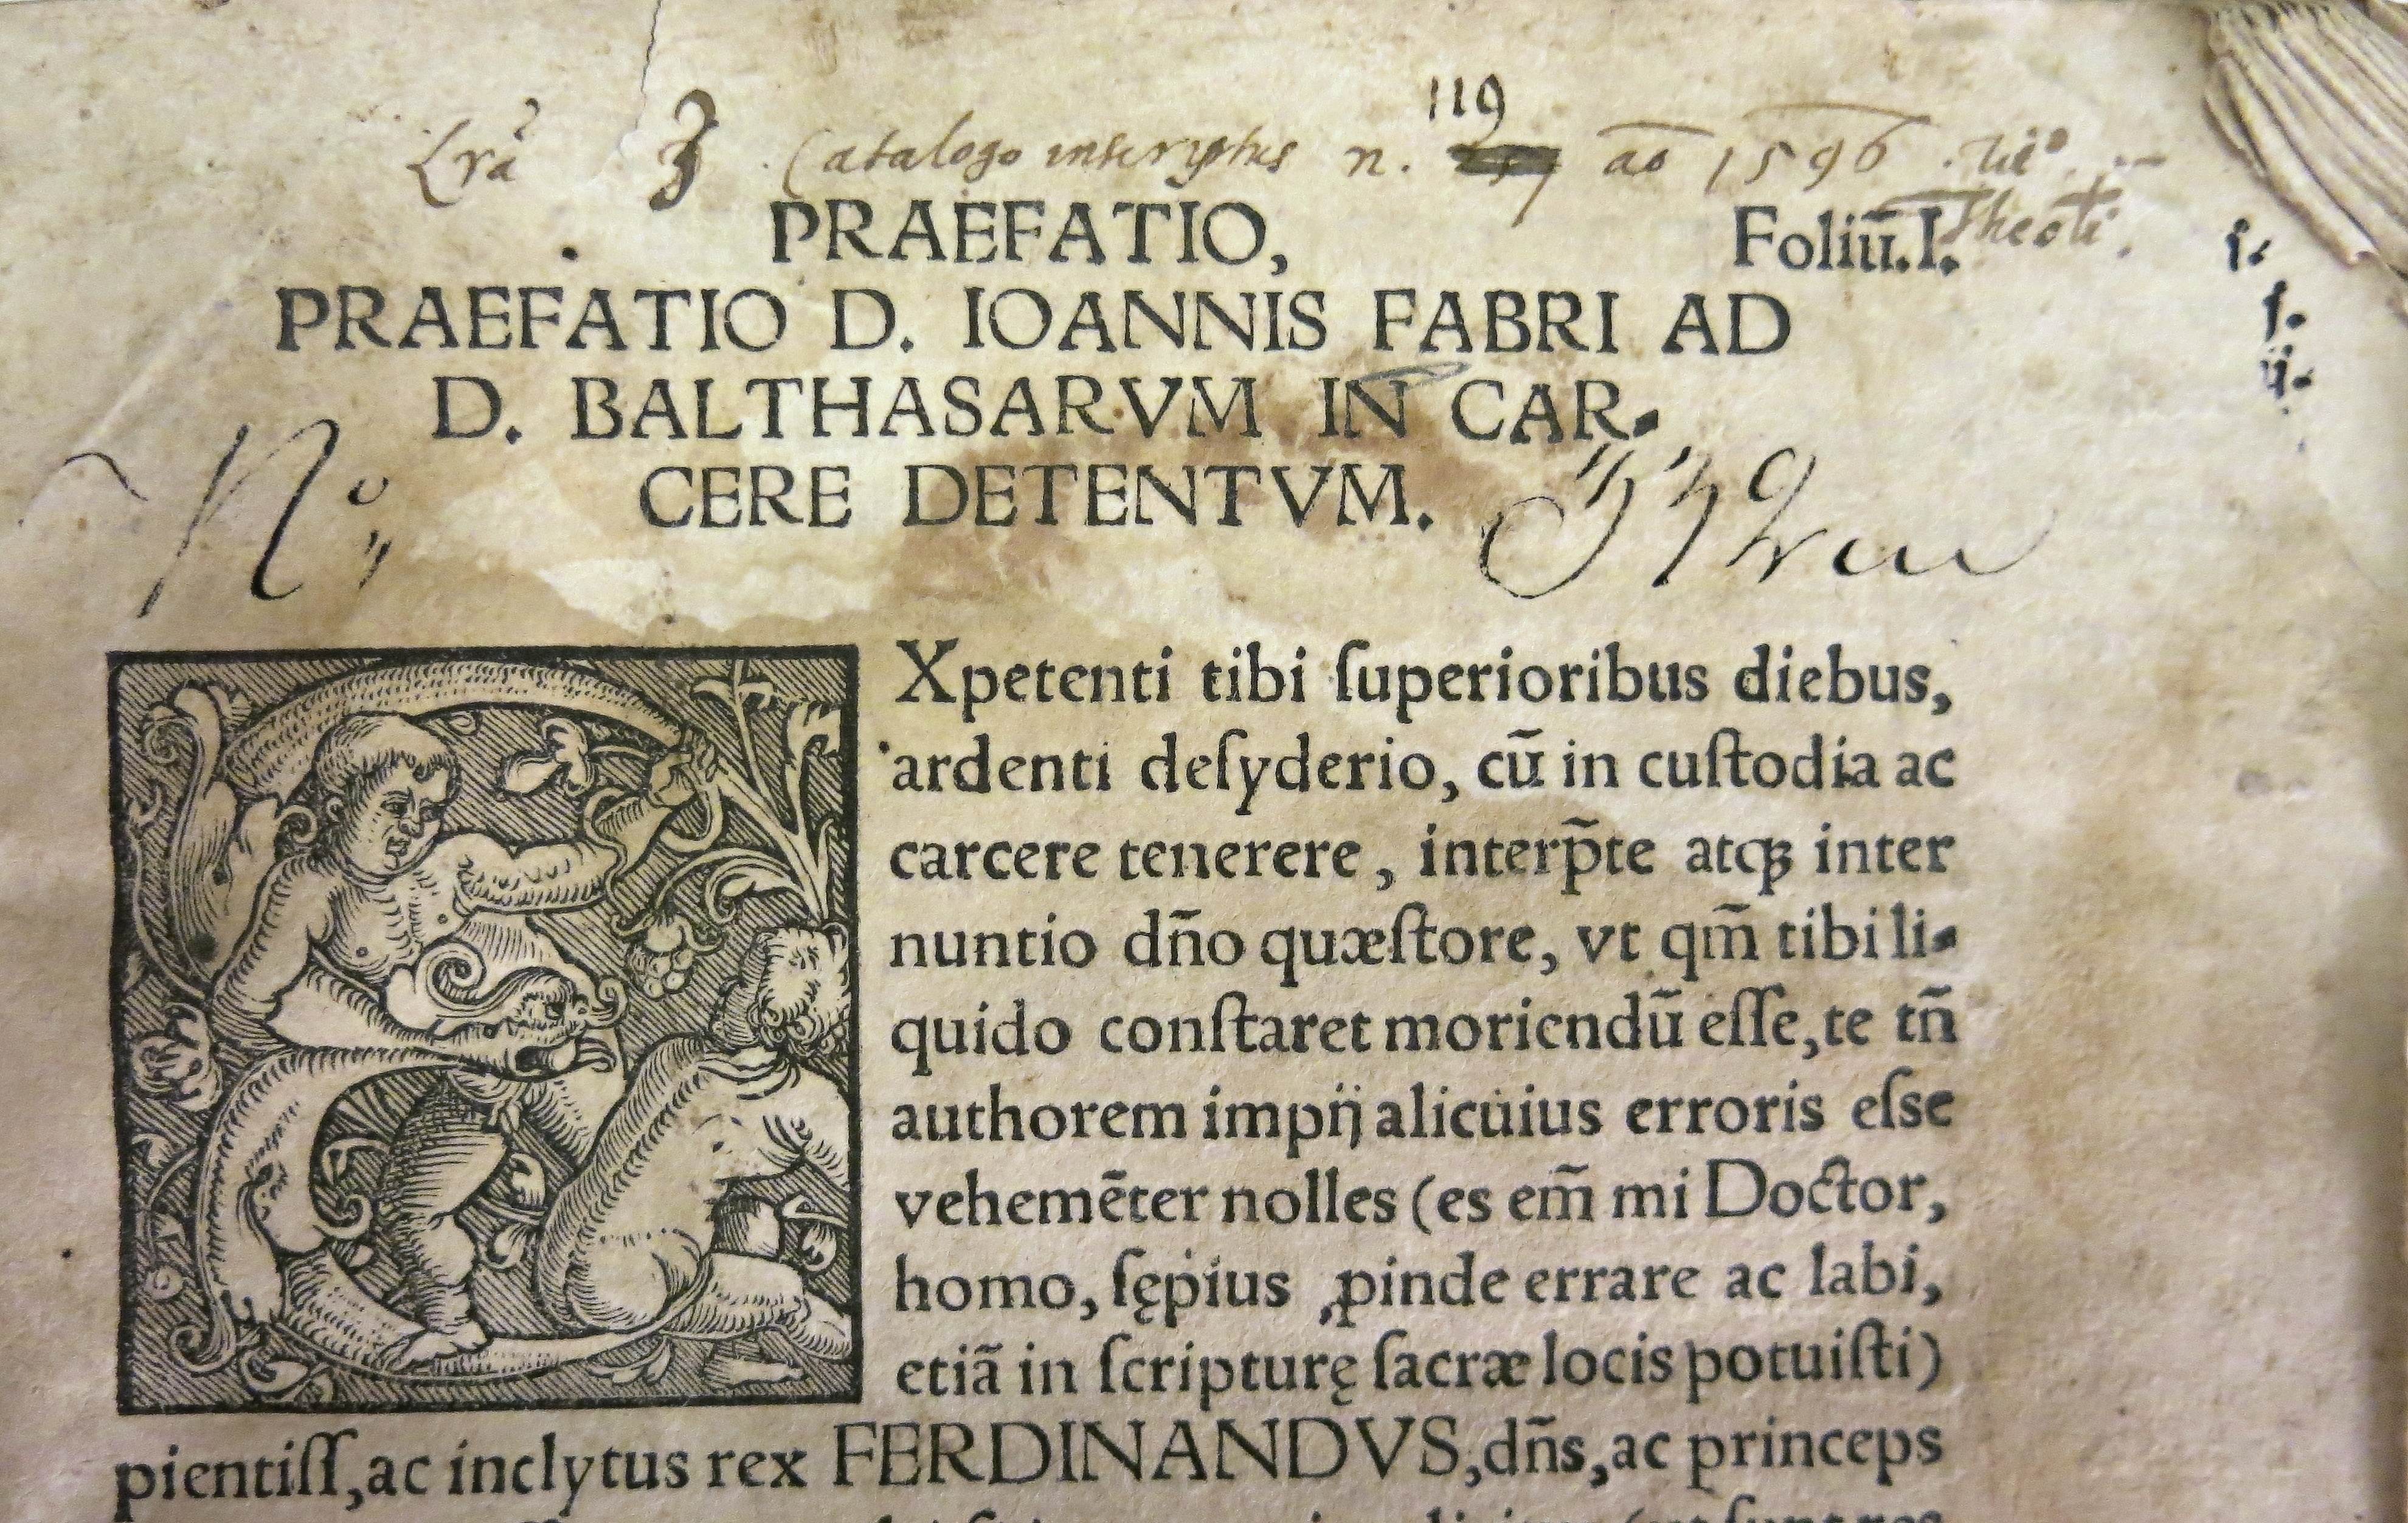 Lrã 3 Catalogo inscriptus n. 119 aō 1596. tit°.
Theoli.
PRAEFATIO, Foliū.I.
PRAEFATIO D. IOANNIS FABRI AD
D. BALTHASARVM IN CAR-
CERE DETENTVM.
N°
Xpetenti tibi ſuperioribus diebus,
ardenti deſyderio, cū in cuſtodia ac
carcere tenerere, interp̃te atqꝫ inter
nuntio dño quæſtore, vt qm̃ tibi li-
quido conſtaret moriendū eſſe, te tñ
authorem impij alicuius erroris elſe
vehemēter nolles (es em̃ mi Doctor,
homo, ſępius ꝓinde errare ac labi,
etiã in ſcripturę ſacræ locis potuiſti)
pientiſſ, ac inclytus rex FERDINANDVS, dñs, ac princeps